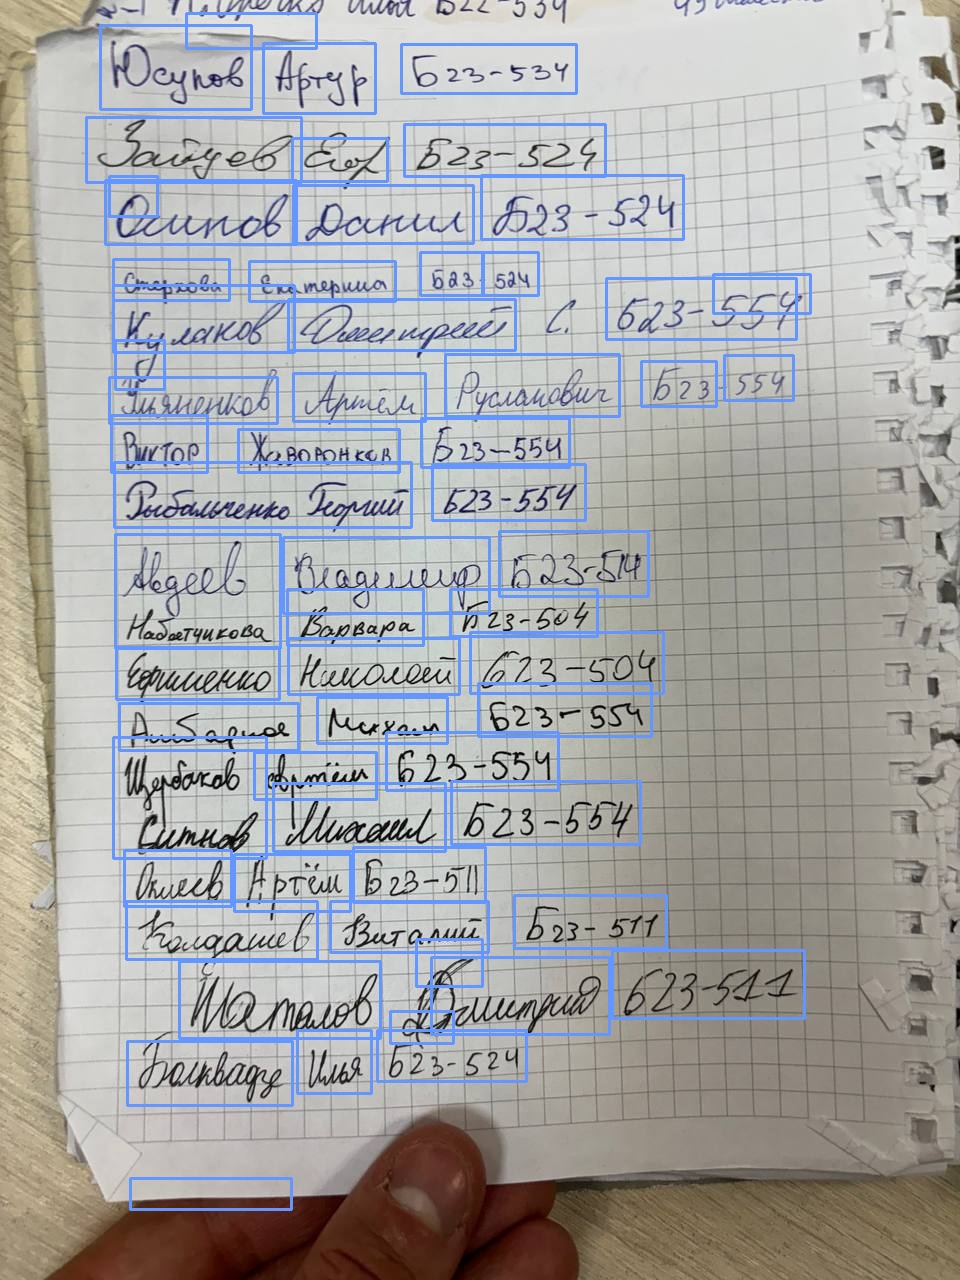 Илья Б22-534
Юсупов Артур Б23-534
Зайцев Егор Б23-524
Осипов Данил Б23-524
Стеркова Екатерина Б23-524
Кулаков Дмитрий С. Б23-554
Артём Русланович Б23-554
Виктор Жаворонков Б23-554
Рыбальченко Георгий Б23-554
Авдеев Владимир Б23-514
Набатчикова Варвара Б23-504
Ефименко Николай Б23-504
Б23-554
Щербаков Артём Б23-554
Ситнов Михаил Б23-554
Оклеев Артём Б23-511
Колдашев Виталий Б23-511
Шаталов Дмитрий Б23-511
Болквадзе Илья Б23-524